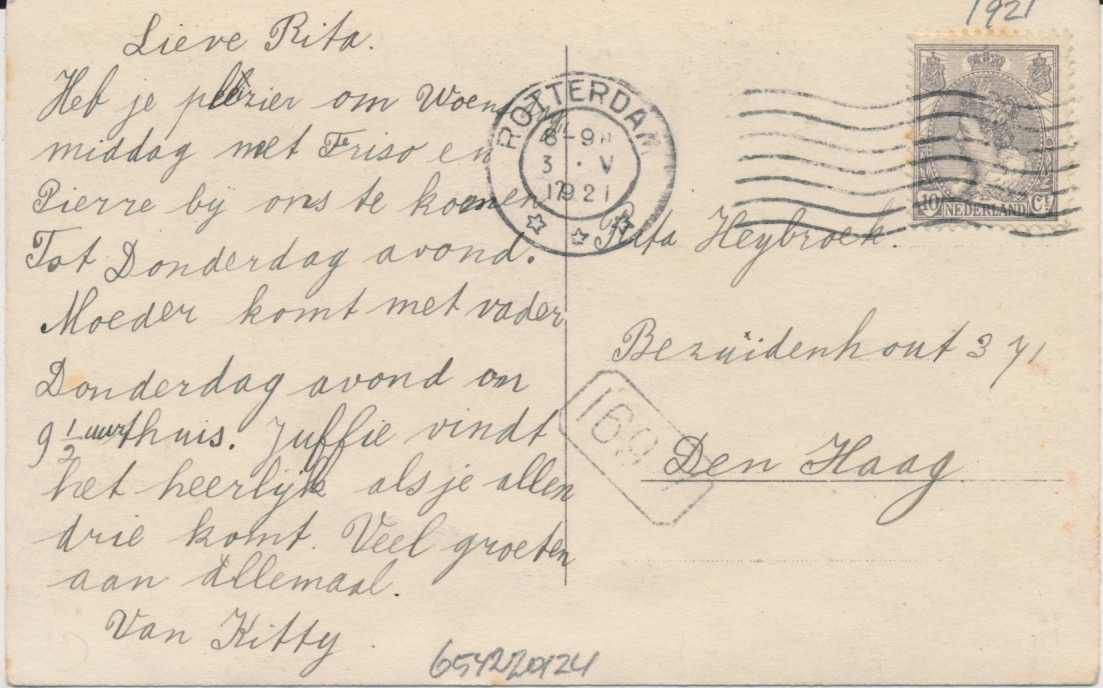 1921
Lieve Rita.
Heb je plezier om Woens
middag met Friso en
Pierre by ons te komen
Tot Donderdag avond.
Moeder komt met vader
Donderdag avond om
9 1/2 uur thuis. Juffie vindt
het heerlyk als je allen
drie komt. Veel groeten
aan allemaal.
Van Kitty.
ROTTERDAM
3 · V
1921
10 NEDERLAND Ct
Rita Heybroek.
Bezuidenhout 371
Den Haag
169
654220124